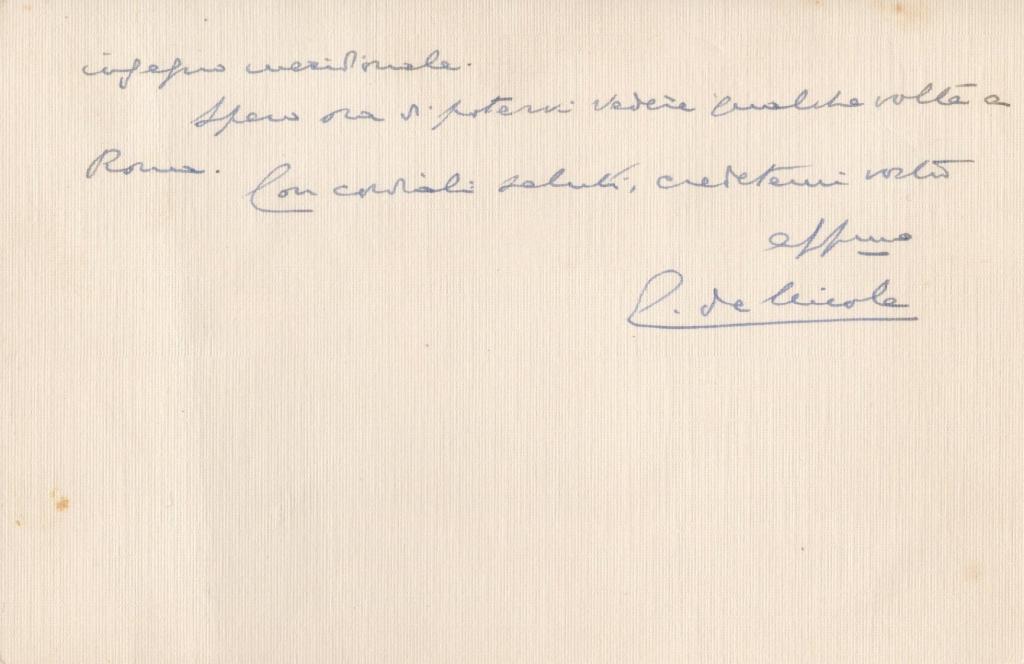 ingegno meridionale.
Spero ora di potervi vedere qualche volta a
Roma.
Con cordiali saluti, credetemi vostro
affmo
de Nicola